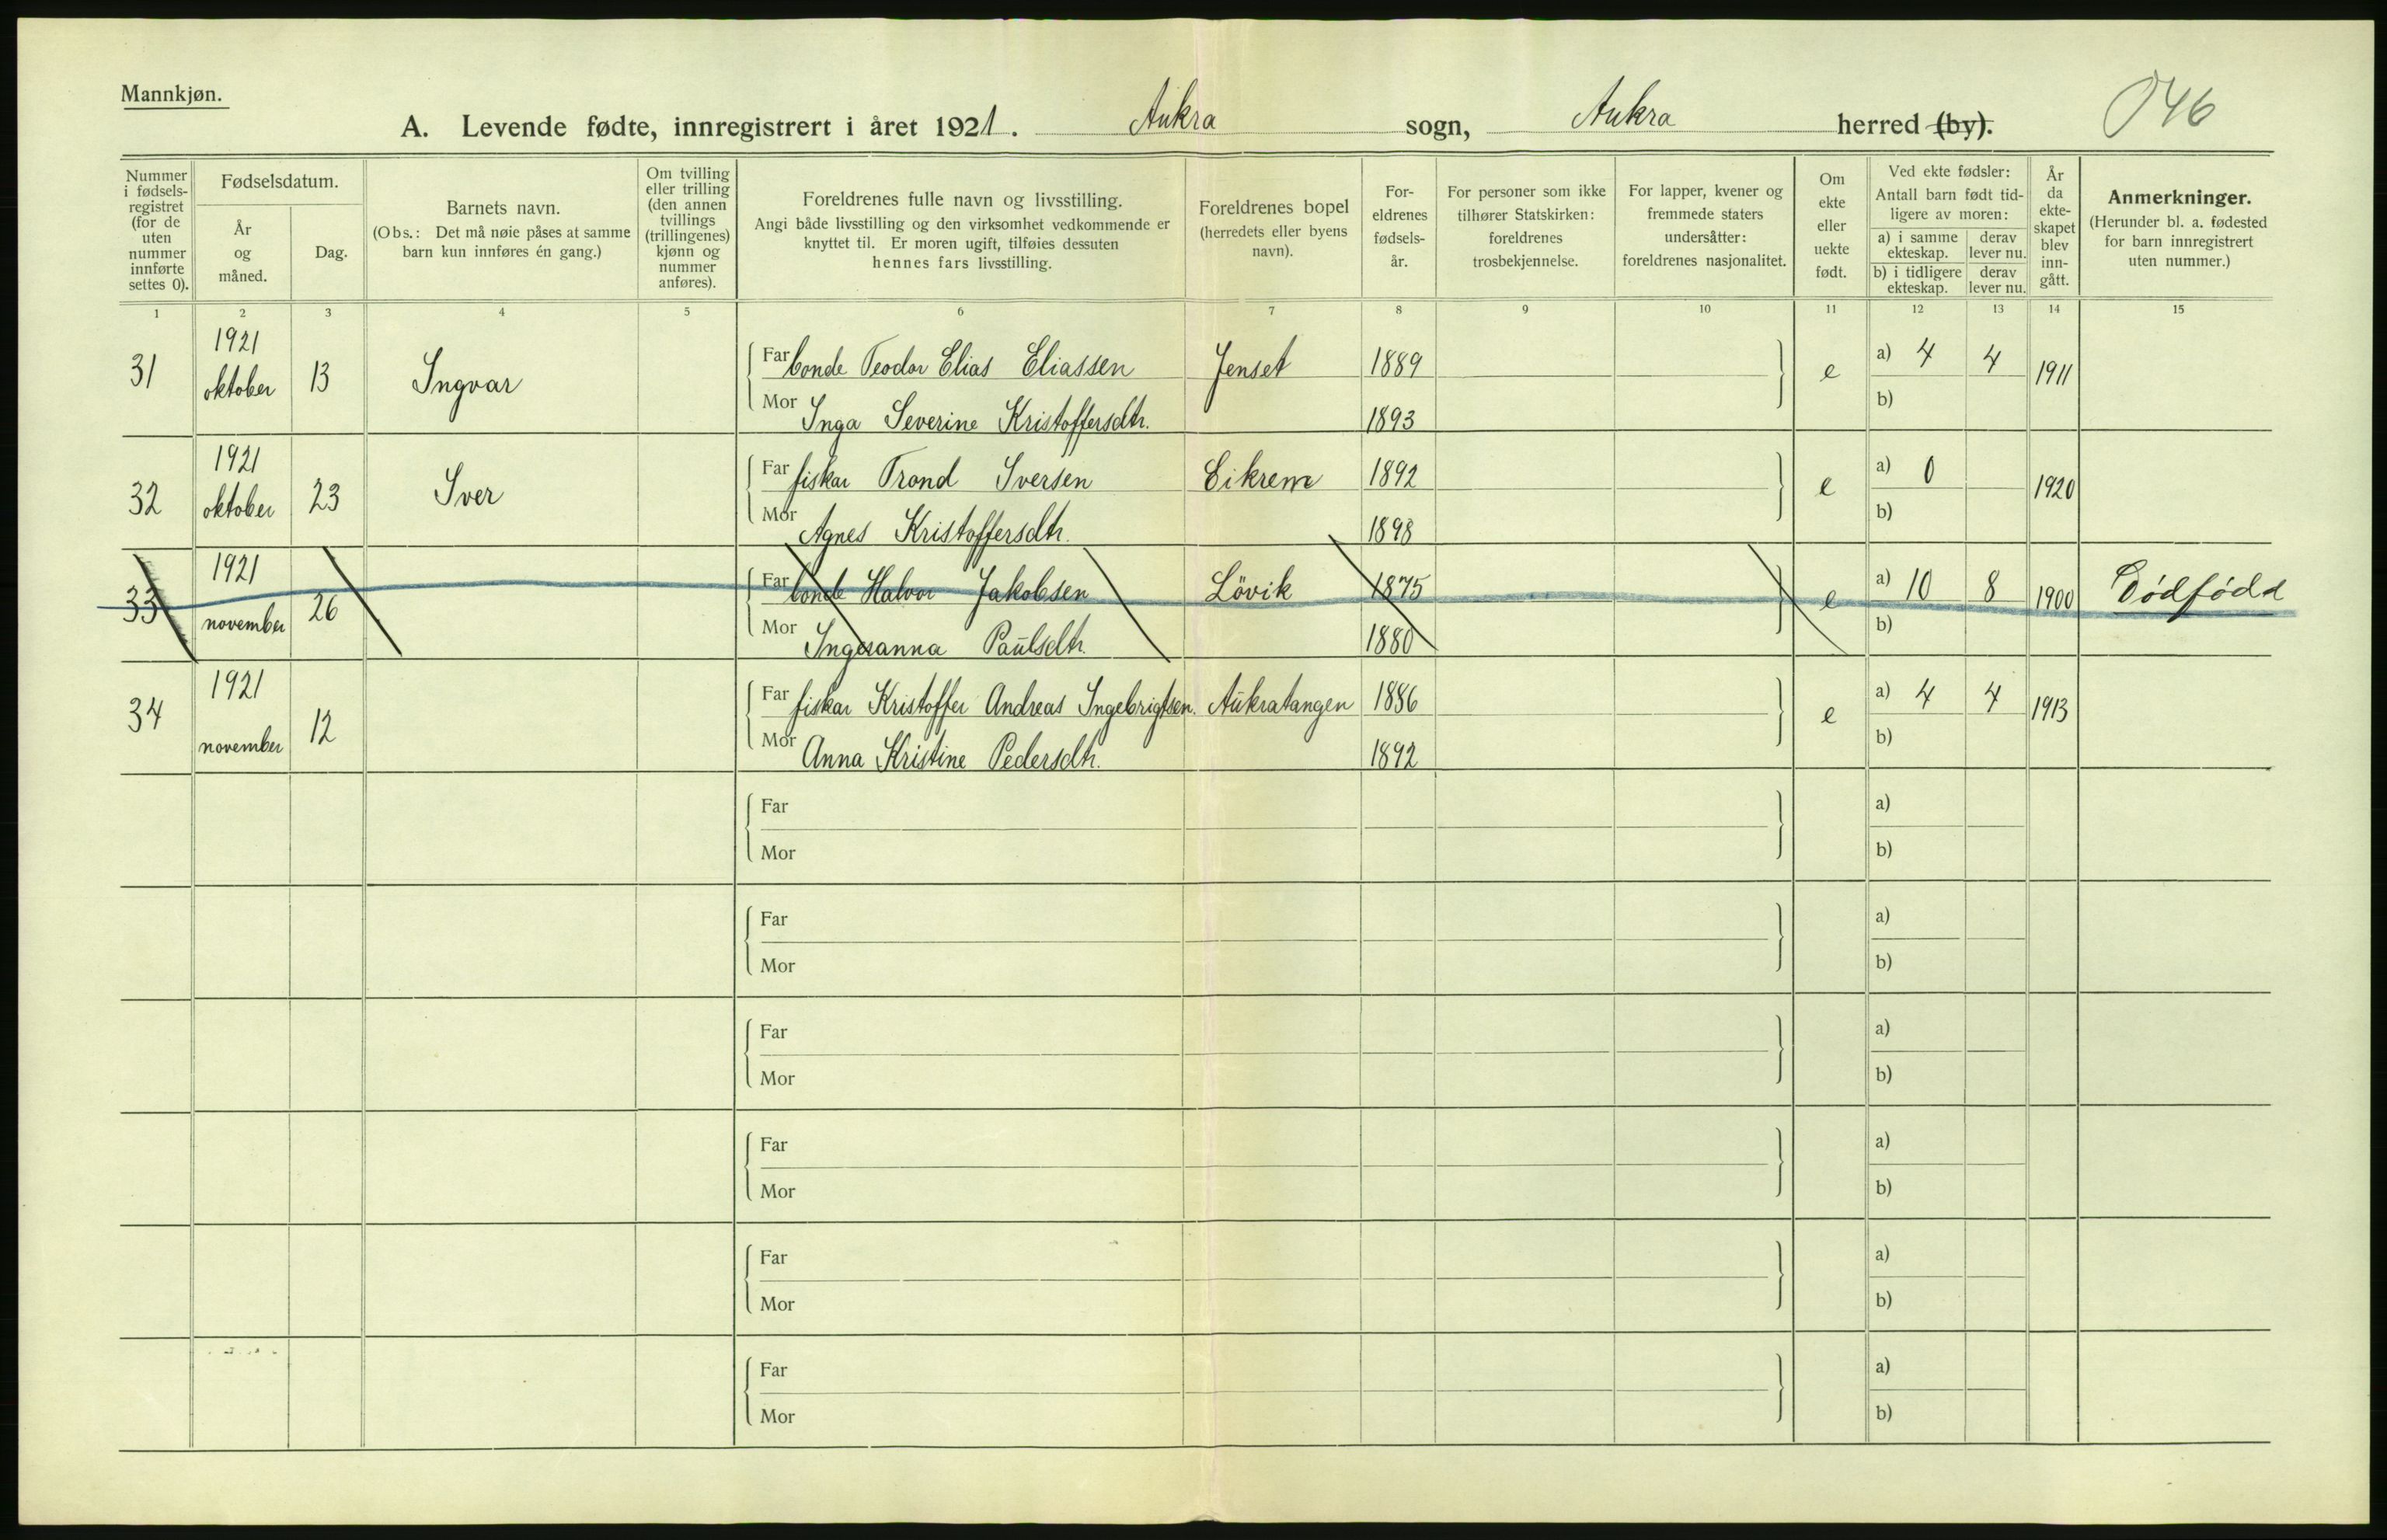 Mannkjøn.
A. Levende fødte, innregistrert i året 1921. Aukra sogn, Aukra herred (by). 046
Nummer i fødselsregistret (for de uten nummer innførte settes 0).
Fødselsdatum.
År og måned.
Dag.
Barnets navn.
(Obs.: Det må nøie påses at samme barn kun innføres én gang.)
Om tvilling eller trilling (den annen tvillings (trillingenes) kjønn og nummer anføres).
Foreldrenes fulle navn og livsstilling.
Angi både livsstilling og den virksomhet vedkommende er knyttet til. Er moren ugift, tilføies dessuten hennes fars livsstilling.
Foreldrenes bopel (herredets eller byens navn).
Foreldrenes fødselsår.
For personer som ikke tilhører Statskirken: foreldrenes trosbekjennelse.
For lapper, kvener og fremmede staters undersåtter: foreldrenes nasjonalitet.
Om ekte eller uekte født.
Ved ekte fødsler:
Antall barn født tidligere av moren:
a) i samme ekteskap. derav lever nu.
b) i tidligere ekteskap. derav lever nu.
År da ekteskapet blev inngått.
Anmerkninger.
(Herunder bl. a. fødested for barn innregistrert uten nummer.)
1 2 3 4 5 6 7 8 9 10 11 12 13 14 15
31 1921 oktober 13 Ingvar Far bonde Teodor Elias Eliassen Jenset 1889 e a) 4 4 1911
Mor Inga Severine Kristoffersdtr. 1893 b)
32 1921 oktober 23 Iver Far fiskar Trond Iversen Eikrem 1892 e a) 0 1920
Mor Agnes Kristoffersdtr. 1898 b)
33 1921 november 26 Far bonde Halvor Jakobsen Lövik 1875 e a) 10 8 1900 Dødfødd
Mor Ingeranna Paulsdtr. 1880 b)
34 1921 november 12 Far fiskar Kristoffer Andreas Ingebrigtsen. Aukratangen 1886 e a) 4 4 1913
Mor Anna Kristine Pedersdtr. 1892 b)
Far a)
Mor b)
Far a)
Mor b)
Far a)
Mor b)
Far a)
Mor b)
Far a)
Mor b)
Far a)
Mor b)